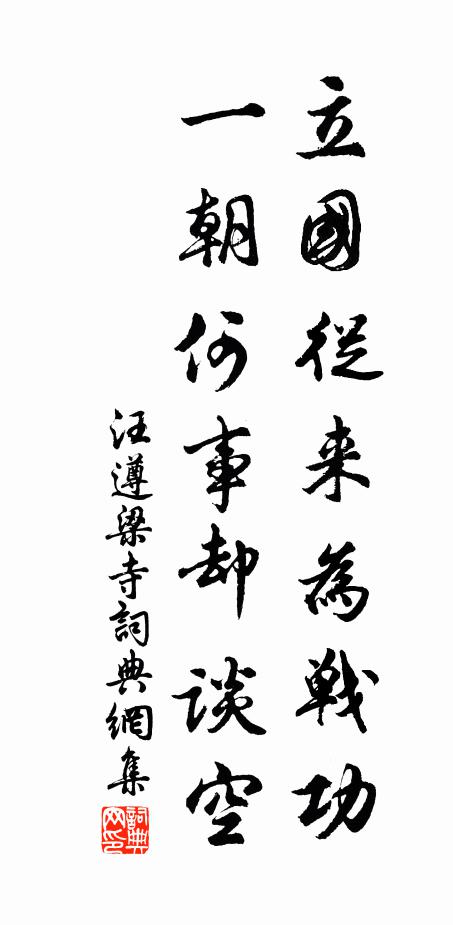 立國從来為戦功
一朝何事却談空
汪遵梁寺詞典網集
詞典网印